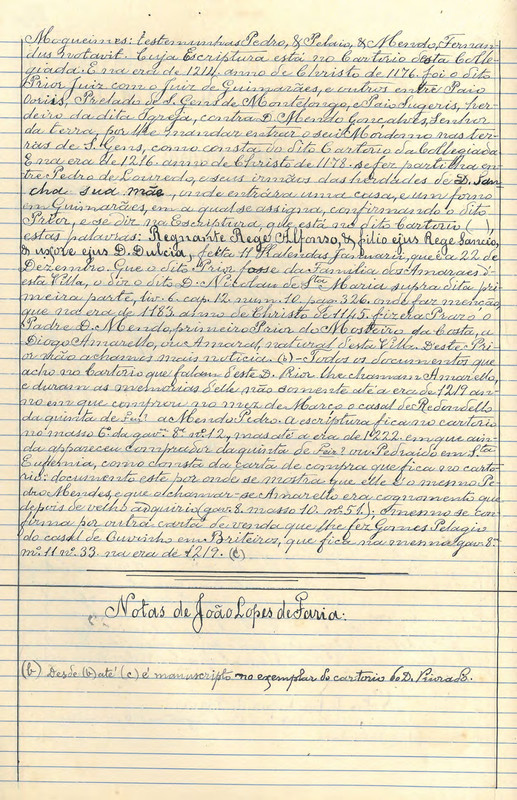 Moqueimes: testemunhas Pedro, & Pelaio, & Mendo, Fernan-
dus notavit. Cuja Escriptura está no Cartorio desta Colle-
giada. E na era de 1214 anno de Christo de 1176. foi o dito
Prior Juiz com o Juiz de Guimarães, e outros entre Paio
Prelado de S. Gens de Montelongo, e Paio Sugeris, her-
deiro da dita Igreja, contra D. Mendo Gonçalves, Senhor
da terra, por lhe mandar entrar o seu Mordomo nas ter-
ras de S. Gens, como consta do dito Cartorio da Collegiada
E na era de 1216. anno de Christo de 1178. se fez partilha en-
tre Pedro de Louredo, e seus irmãos das herdades de D. San-
cha sua mãe, onde entrára uma casa, e um forno
em Guimarães, em a qual se assigna, confirmando o dito
Prior, e se diz na Escriptura, que está no dito Cartorio
estas palavras: Regnante Rege Alfonso, & filio ejus Rege Sancio,
& uxore ejus D. Dulcia, feita 11 Kalendas Januarii, que é a 22 de
Dezembro. Que o dito Prior fosse da Familia dos Amaraes d'
esta Villa, o diz o dito D. Nicolau de Sta Maria supra dita pri-
meira parte, liv. 6. cap. 12. num. 10. pag. 326. onde faz menção,
que na era de 1183. anno de Christo de 1145. fizera Prazo o
Padre D. Mendo, primeiro Prior do Mosteiro da Costa, a
Diogo Amarello, ou Amaral, natural desta Villa. Deste Pri-
or não achamos mais noticia. (b) - Todos os documentos que
acho no Cartorio que falam deste D. Prior lhe chamam Amarello,
e duram as memorias delle não somente até a era de 1217 an-
no em que comprou no mez de Março o casal de Redondello
da quinta de a Mendo Pedro. a escriptura fica no cartorio
no masso 6º da gavª 8ª nº 12, mas até a era de 1222 em que ain-
da appareceu comprador da quinta de ou Pedraido em Sta
Eufemia, como consta da carta de compra que fica no carto-
rio: documento este por onde se mostra que elle é o mesmo Pe-
dro Mendes, e que o chamar-se Amarello era cognomento que
depois de velho adquiriu (gav. 8. masso 10. nº 51.); o mesmo se con-
firma por outra carta de venda que lhe fez Gomes Pelagio
do casal de em Briteiros, que fica na mesma gav. 8ª
mº 11 nº 33 na era de 1219. (c)
Notas de João Lopes de Faria:
(b) Desde (b) até (c) é manuscripto no exemplar do cartorio do D. Priorado.